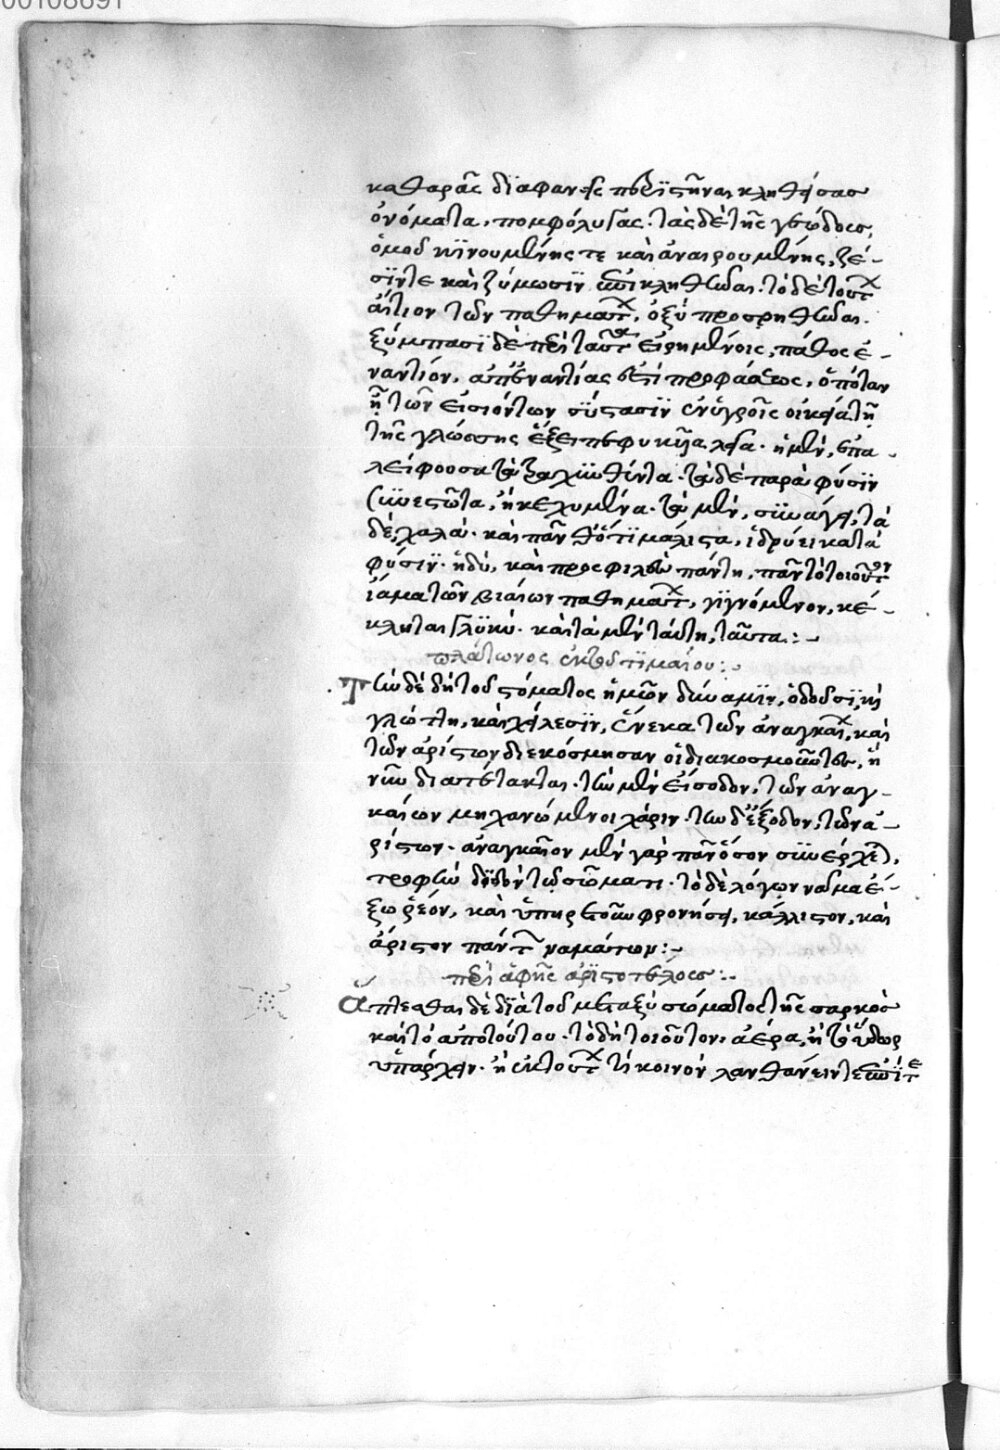 00108691
καθαρᾶς διαφανεῖς περιστῆναι κληθείσας
ὀνόματα, πομφόλυγας· τὰς δὲ τῆς γεώδους,
ὁμοῦ κινουμένης τε καὶ ἀναιρουμένης, ζέ-
σίν τε καὶ ζύμωσιν ἐπίκλην κληθῆναι· τὸ δὲ τούτων
αἴτιον τῶν παθημάτων, ὀξὺ προσρηθῆναι.
ξύμπασι δὲ περὶ ταῦτα εἰρημένοις, πάθος ἐ-
ναντίον, ἀπ' ἐναντίας ἐστὶ προφάσεως, ὁπόταν
ἡ τῶν εἰσιόντων σύστασιν ἐν ὑγροῖς οἰκεία τῇ
τῆς γλώσσης ἕξει πεφυκυῖα λεία· ἡ μὲν, ἐπα-
λείφουσα τὰ τραχυνθέντα· τὰ δὲ παρὰ φύσιν
συνεστῶτα, ἢ κεχυμένα· τὰ μὲν, συνάγει, τὰ
δὲ, χαλᾷ· καὶ πάνθ' ὅτι μάλιστα, ἱδρύει κατὰ
φύσιν· ἡδὺ, καὶ προσφιλὲς πάντη, πᾶν τὸ τοιοῦτον
ἴαμα τῶν βιαίων παθημάτων, γιγνόμενον, κέ-
κληται γλυκύ· καὶ τὰ μὲν ταύτῃ, ταῦτα:-
πλάτωνος ἐκ τοῦ τιμαίου:-
Τὴν δὲ δὴ τοῦ στόματος ἡμῶν δύναμιν, ὀδοῦσιν, καὶ
γλώττῃ, καὶ χείλεσιν, ἕνεκα τῶν ἀναγκαίων, καὶ
τῶν ἀρίστων διεκόσμησαν οἱ διακοσμοῦντες, ᾗ
νῦν διατέτακται· τὴν μὲν εἴσοδον, τῶν ἀναγ-
καίων μηχανώμενοι χάριν· τὴν δ' ἔξοδον, τῶν ἀ-
ρίστων· ἀναγκαῖον μὲν γὰρ πᾶν ὅσον συνέρχεται,
τροφὴν διδὸν τῷ σώματι· τὸ δὲ λόγων νᾶμα ἔ-
ξω ῥέον, καὶ ὑπηρετοῦν φρονήσει, κάλλιστον, καὶ
ἄριστον πάντων ναμάτων:-
περὶ ἁφῆς ἀριστοτέλους:-
Ἅπτεσθαι δὲ διὰ τοῦ μεταξὺ σώματος τῆς σαρκὸς
καὶ τὸ ἀπὸ τούτου· τὸ δὴ τοιοῦτον, ἀέρα, ἢ τὸ ὕδωρ
ὑπάρχειν· ἢ ἐκ τούτων τι κοινὸν λανθάνειν τε